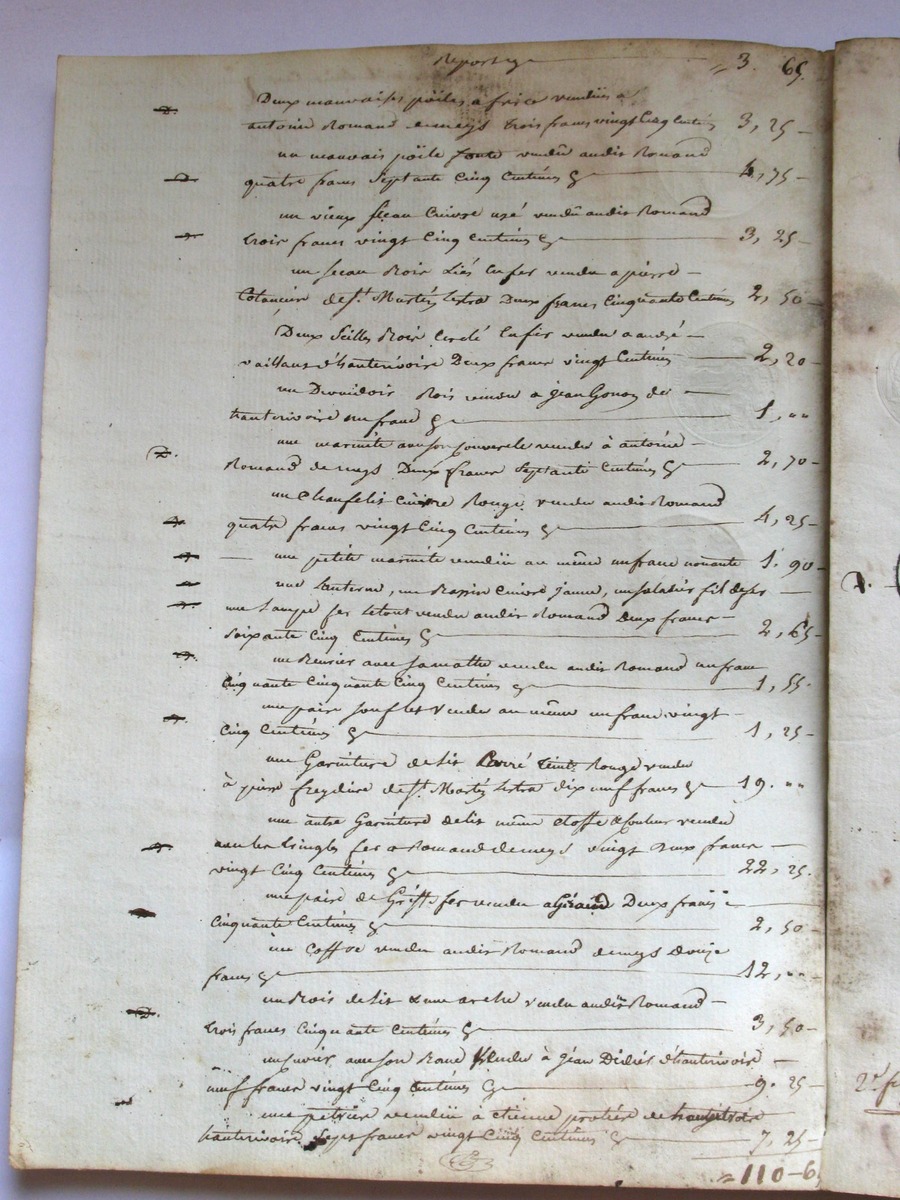 Report ≈ 3. 65.
D. Deux mauvaises poëles a frire vendües a
antoine Romand demeys trois francs vingt Cinq Centimes 3, 25-
un mauvais poële fonte vendu audit Romand
quatre francs Septante Cinq Centimes 4, 75-
un vieux Seau Cuivre usé vendu audit Romand
trois francs vingt Cinq Centimes 3, 25-
un Seau Bois Liés en fer vendu a pierre -
de St. Martin Lestra Deux francs Cinquante Centimes 2, 50-
Deux Seilles Bois Cerclé en fer vendu a andré -
vaillant d'hauterivoire Deux francs vingt Centimes 2, 20-
un Devidoir Bois vendu a jean Gonon de -
hauterivoire un franc 1, ""
D. une marmitte avec son Couvercle vendu à antoine -
Romand de meys Deux francs Septante Centimes 2, 70-
un Chaufelit Cuivre Rouge vendu audit Romand
quatre francs vingt Cinq Centimes 4, 25-
une petite marmite vendüe au même un franc nonante 1. 90-
une Lanterne, un Bassin Cuivre jaune, un saladier fil de fer -
une Lampe fer le tout vendu audit Romand Deux francs -
soixante Cinq Centimes 2, 65-
un avec vendu audit Romand un franc
Cinquante Cinquante Cinq Centimes 1, 55-
une paire souflet vendu au même un franc vingt -
Cinq Centimes 1, 25-
une Garniture de lit teint Rouge vendu
à pierre freydiere de St. Martin Lestra dix neuf francs 19. ""
une autre Garniture de lit même etoffe & Couleur vendu
avec les tringles fer a Romand de meys vingt Deux francs -
vingt Cinq Centimes 22, 25.
une paire de Griffe fer vendu a Giraud Deux francs
Cinquante Centimes 2, 50-
un Coffre vendu audit Romand de meys Douze
francs 12, ""
un Bois de lit & une arche vendu audit Romand -
trois francs Cinquante Centimes 3, 50-
un avec son Banc Vendu à jean Didier d'hauterivoire -
neuf francs vingt Cinq Centimes 9. 25-
une petriere vendüe à etienne de
hauterivoire Sept francs vingt Cinq Centimes 7, 25-
= 110-6
D.